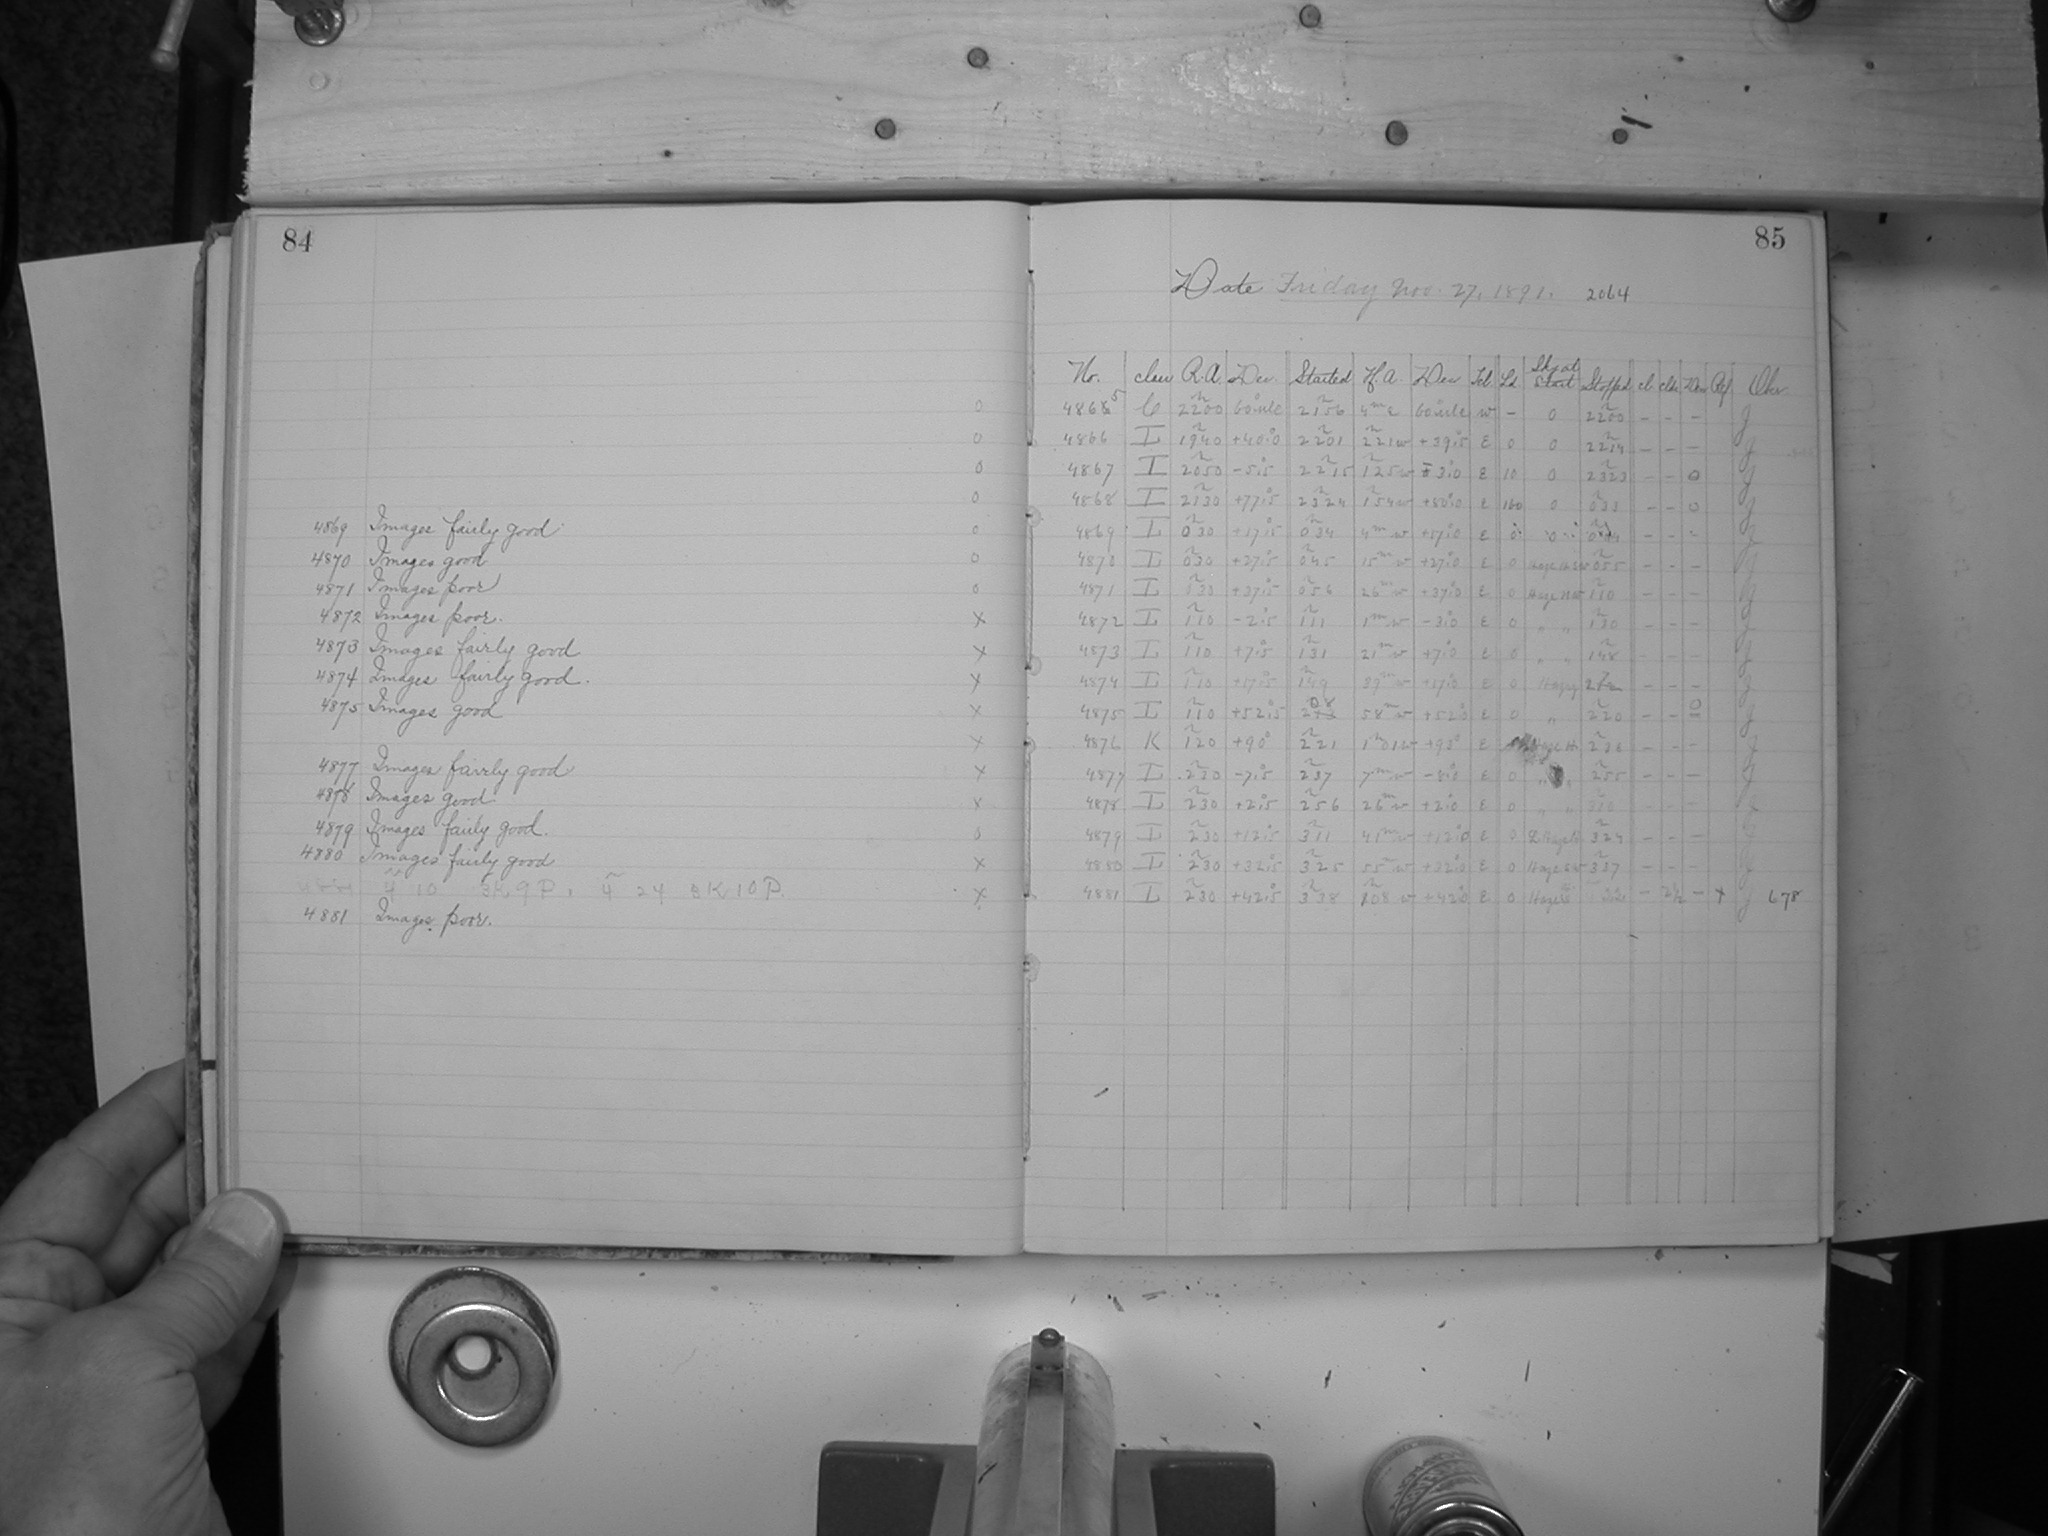 84
4869 Images fairly good
4870 Images good
4871 Images poor
4872 Images poor.
4873 Images fairly good
4874 Images fairly good.
4875 Images good
4877 Images fairly good
4878 Images good
4879 Images fairly good.
4880 Images fairly good
4 10 3K9P, 4 24 3K10P.
4881 Images poor.
o
o
o
o
o
o
o
x
x
x
x
x
x
x
o
x
x
85
Date Friday Nov. 27, 1891. 2064
No. class R.A. Dec. Started H.A. Dec Td Ld Sky at Start Stopped cl clk Dew Ref Obsr
4865 C 2200 2156 4m E w - 0 2200 - - -
4866 I 1940 +40.0 2201 221w +39.5 E 0 0 2214 - - -
4867 I 2050 -5.5 2215 125w 3.0 E 10 0 2323 - - 0
4868 I 2130 +77.5 2324 154w +80.0 E 160 0 033 - - 0
4869 I 030 +17.5 034 4m w +17.0 E 0 0 - - -
4870 I 030 +27.5 045 15m w +27.0 E 0 Haze 055 - - -
4871 I 030 +37.5 056 26m w +37.0 E 0 Haze NW 110 - - -
4872 I 110 -2.5 111 1m w -3.0 E 0 " " 130 - - -
4873 I 110 +7.5 131 21m w +7.0 E 0 " " 148 - - -
4874 I 110 +17.5 149 39m w +17.0 E 0 Hazy - - -
4875 I 110 +52.5 208 58m w +52.0 E 0 " 220 - - 0
4876 K 120 +90° 221 1h01w +90° E 236 - - -
4877 I 230 -7.5 237 7m w -8.0 E 0 " " 255 - - -
4878 I 230 +2.5 256 26m w +2.0 E 0 " " 310 - - -
4879 I 230 +12.5 311 41m w +12.0 E 0 324 - - -
4880 I 230 +32.5 325 55m w +32.0 E 0 Haze SW 337 - - -
4881 I 230 +42.5 338 108 w +42.0 E 0 - 2½ - x 678